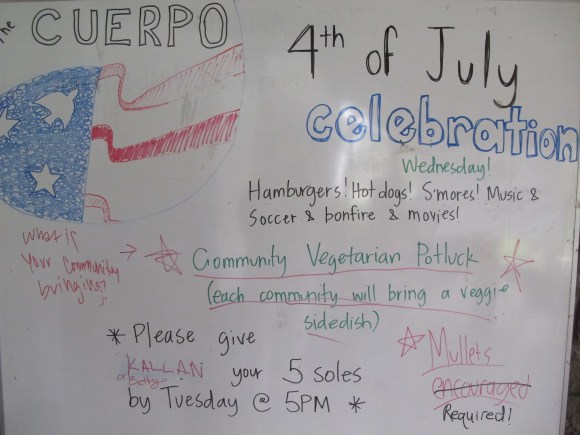 the CUERPO
4th of July
celebration
Wednesday!
Hamburgers! Hot dogs! S'mores! Music &
Soccer & bonfire & movies!
What is
your community
bringing?
Community Vegetarian Potluck
(each community will bring a veggie
sidedish)
* Please give
KALLAN your 5 soles
or Betty
by Tuesday @ 5PM *
Mullets
encouraged
Required!